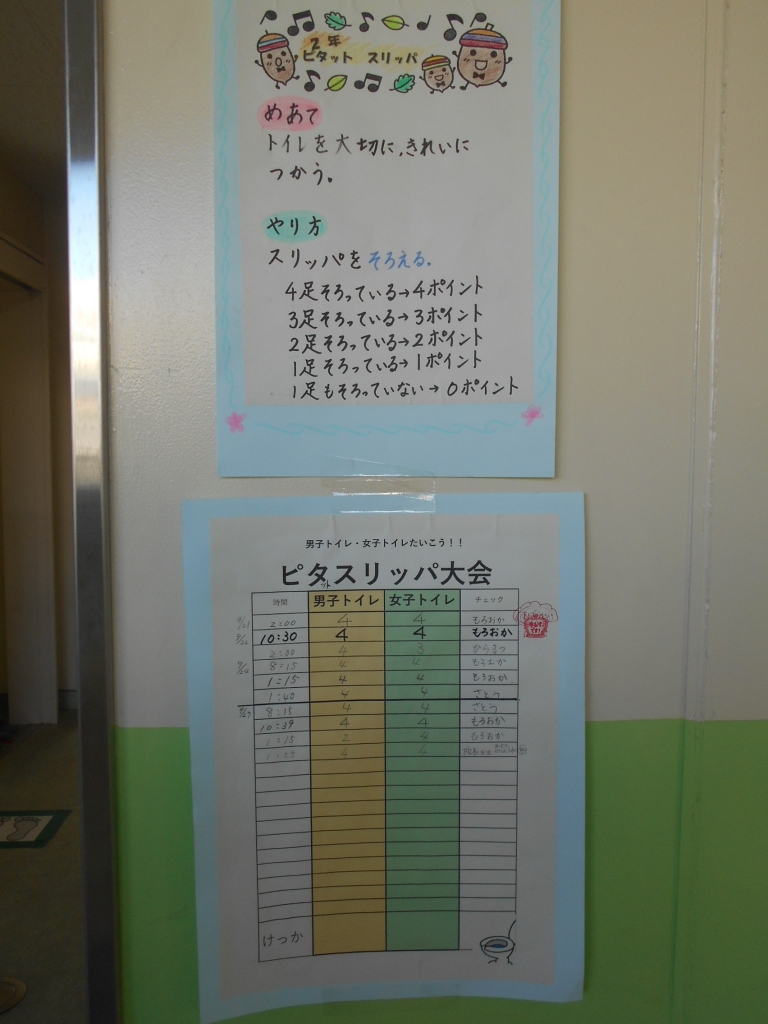 2年
ピタット スリッパ
めあて
トイレを大切に、きれいに
つかう。
やり方
スリッパをそろえる。
4足そろっている→4ポイント
3足そろっている→3ポイント
2足そろっている→2ポイント
1足そろっている→1ポイント
1足もそろっていない→0ポイント
男子トイレ・女子トイレたいこう!!
ピタットスリッパ大会
時間 男子トイレ 女子トイレ チェック
2:00 4 4 もろおか
10:30 4 4 もろおか
2:00 4 3 からまつ
8:15 4 4 もろおか
1:15 4 4 もろおか
1:40 4 4 さとう
8:15 4 4 さとう
10:39 4 4 もろおか
1:15 2 4 もろおか
4 4
けっか